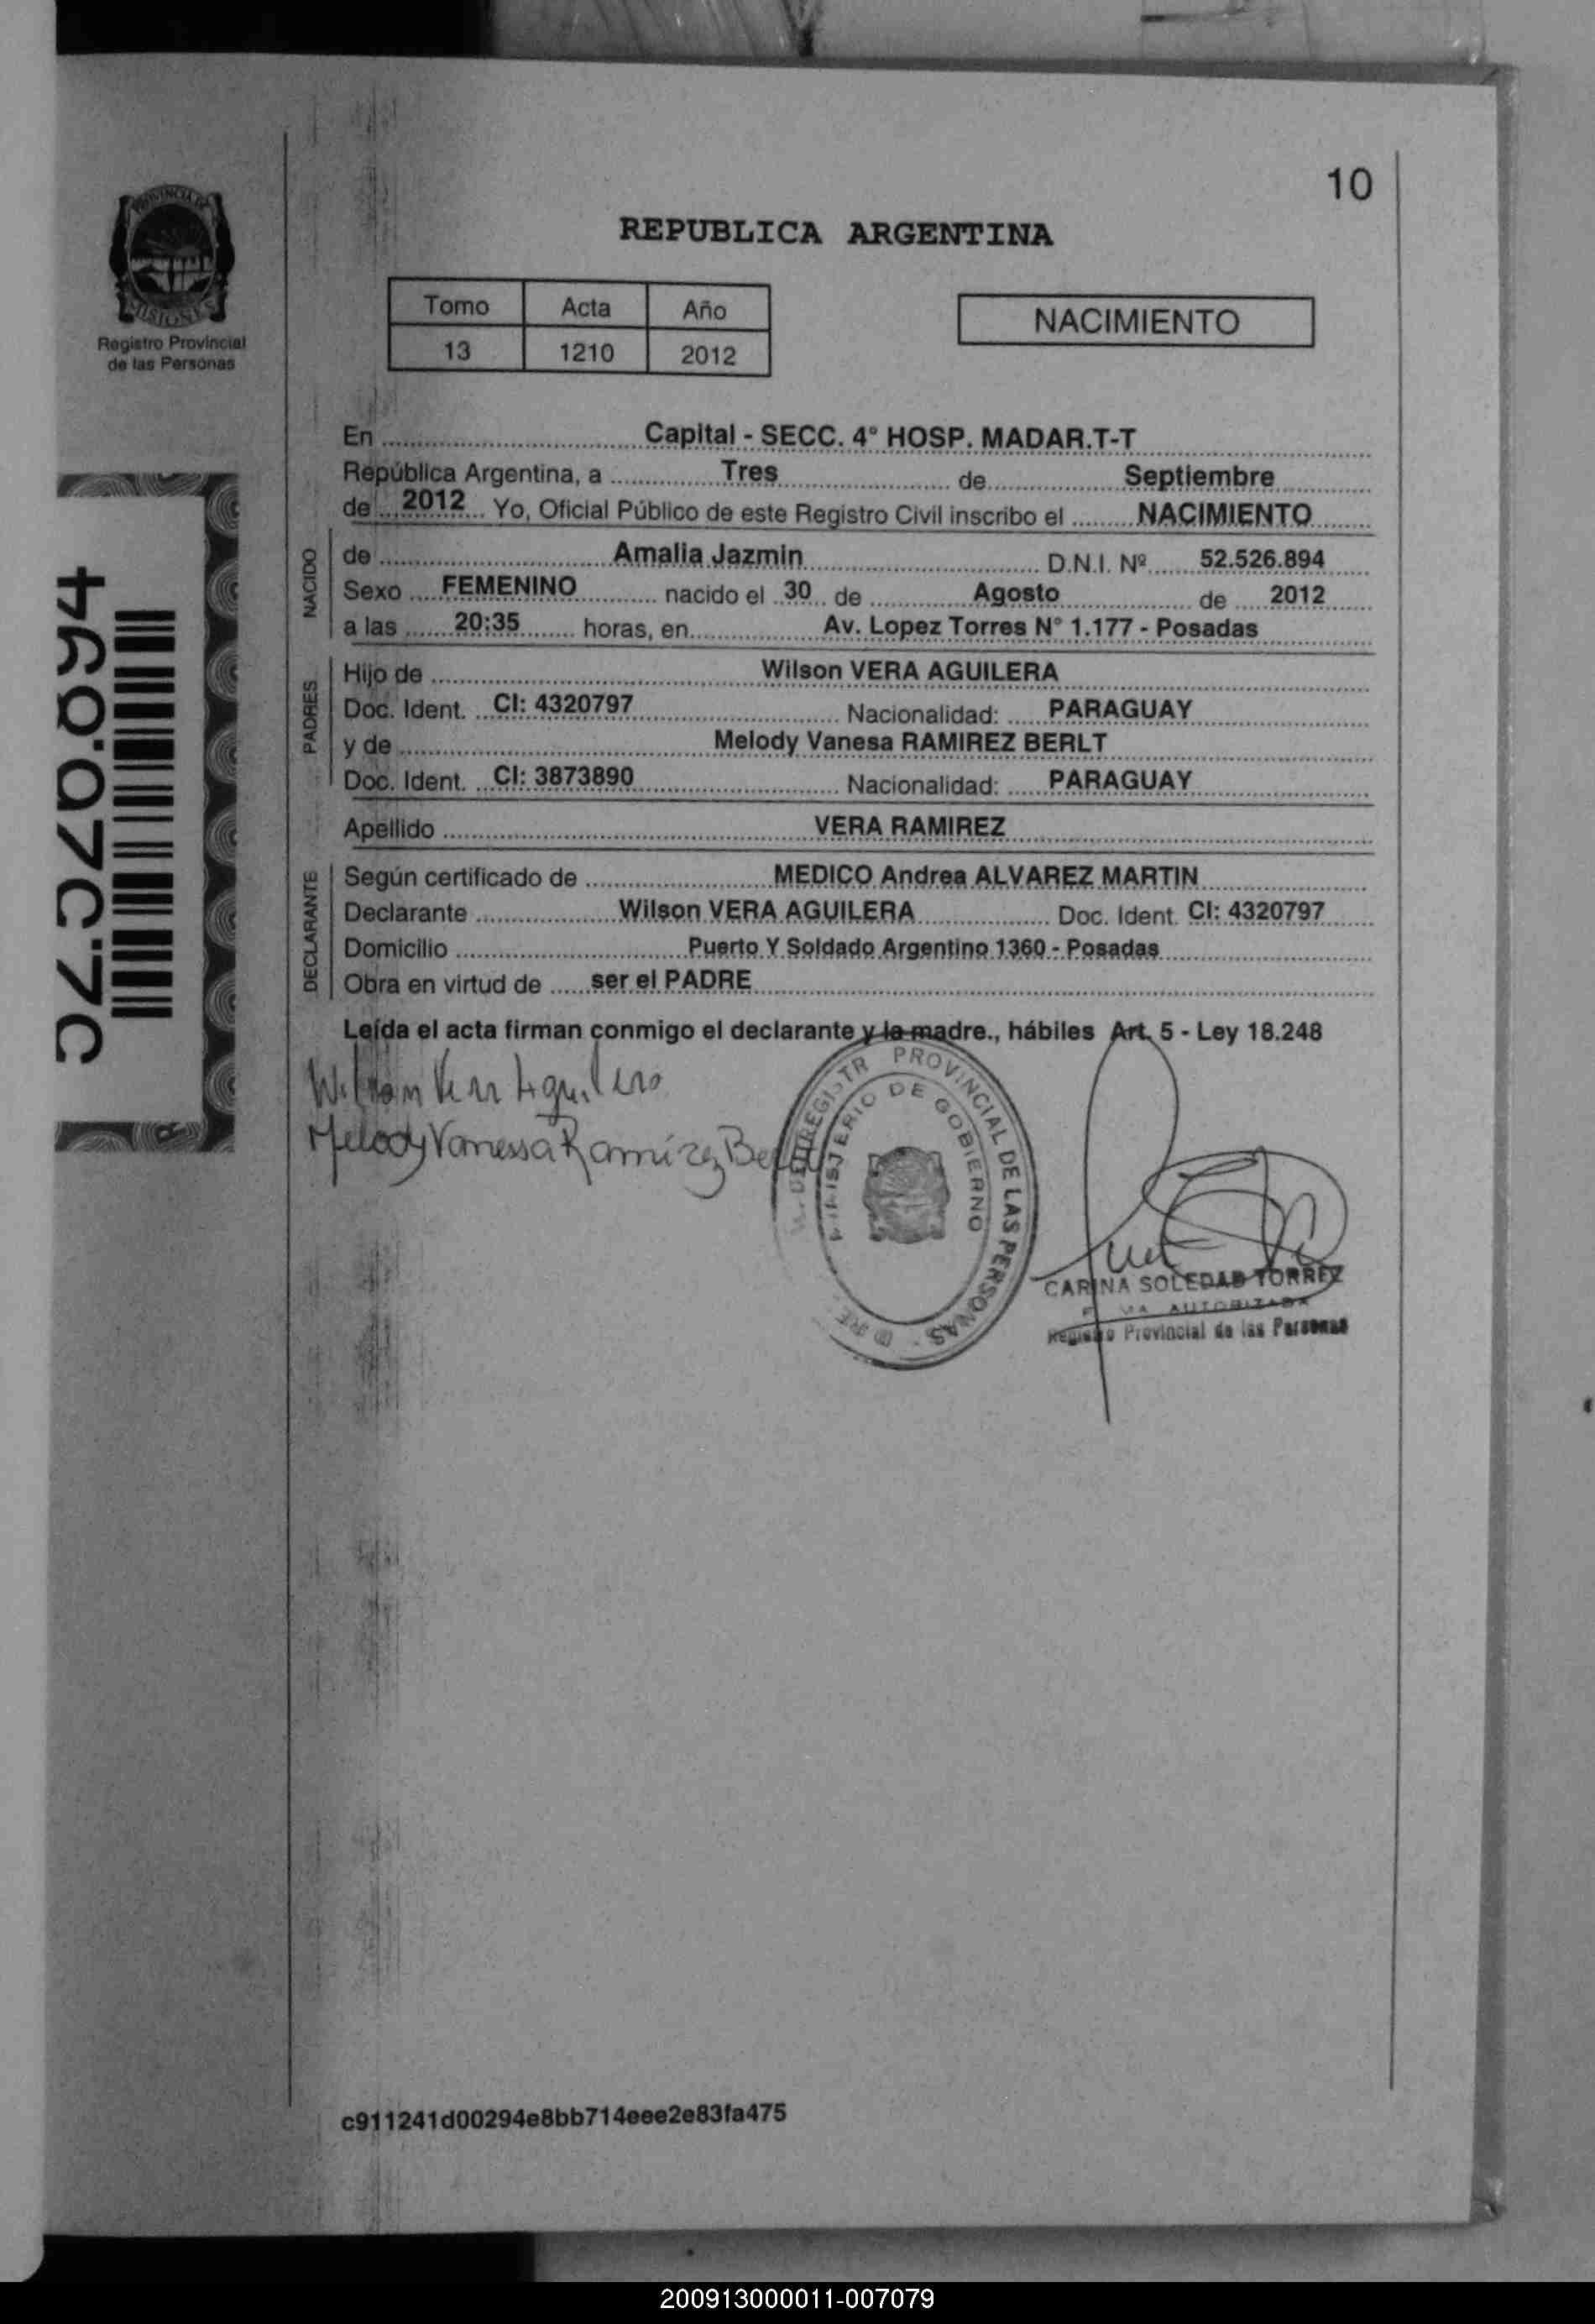 10
PROVINCIA DE
MISIONES
Registro Provincial
de las Personas
REPUBLICA ARGENTINA
Tomo Acta Año
13 1210 2012
NACIMIENTO
En Capital - SECC. 4° HOSP. MADAR.T-T
República Argentina, a Tres de Septiembre
de 2012 Yo, Oficial Público de este Registro Civil inscribo el NACIMIENTO
NACIDO
de Amalia Jazmin D.N.I. Nº 52.526.894
Sexo FEMENINO nacido el 30 de Agosto de 2012
a las 20:35 horas, en Av. Lopez Torres N° 1.177 - Posadas
PADRES
Hijo de Wilson VERA AGUILERA
Doc. Ident. CI: 4320797 Nacionalidad: PARAGUAY
y de Melody Vanesa RAMIREZ BERLT
Doc. Ident. CI: 3873890 Nacionalidad: PARAGUAY
Apellido VERA RAMIREZ
DECLARANTE
Según certificado de MEDICO Andrea ALVAREZ MARTIN
Declarante Wilson VERA AGUILERA Doc. Ident. CI: 4320797
Domicilio Puerto Y Soldado Argentino 1360 - Posadas
Obra en virtud de ser el PADRE
Leída el acta firman conmigo el declarante y la madre., hábiles Art. 5 - Ley 18.248
Wilson Vera Aguilera
Melody Vanessa Ramírez
PROVINCIAL DE LAS PERSONAS
DE GOBIERNO
CARINA SOLEDAD TORREZ
AUTORIZADA
Registro Provincial de las Personas
c911241d00294e8bb714eee2e83fa475
200913000011-007079